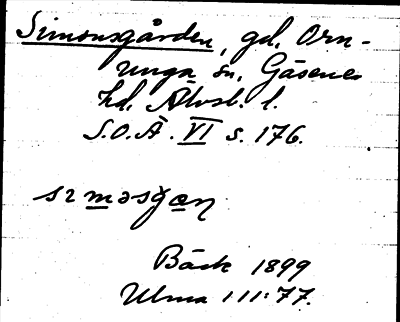 Simonsgården, gd. Orn-
unga sn, Gäsene
hd. Älvsb. l.
S.O.Ä. VI s. 176.
Bäck 1899
Ulma 111:77.